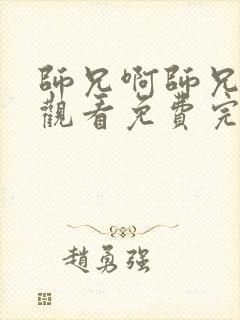 師兄啊師兄
觀看免費完
趙勇強